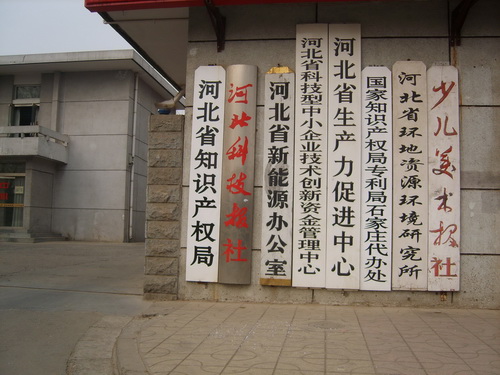 河北省知识产权局
河北科技报社
河北省新能源办公室
河北省科技型中小企业技术创新资金管理中心
河北省生产力促进中心
国家知识产权局专利局石家庄代办处
河北省环地资源环境研究所
少儿美术报社